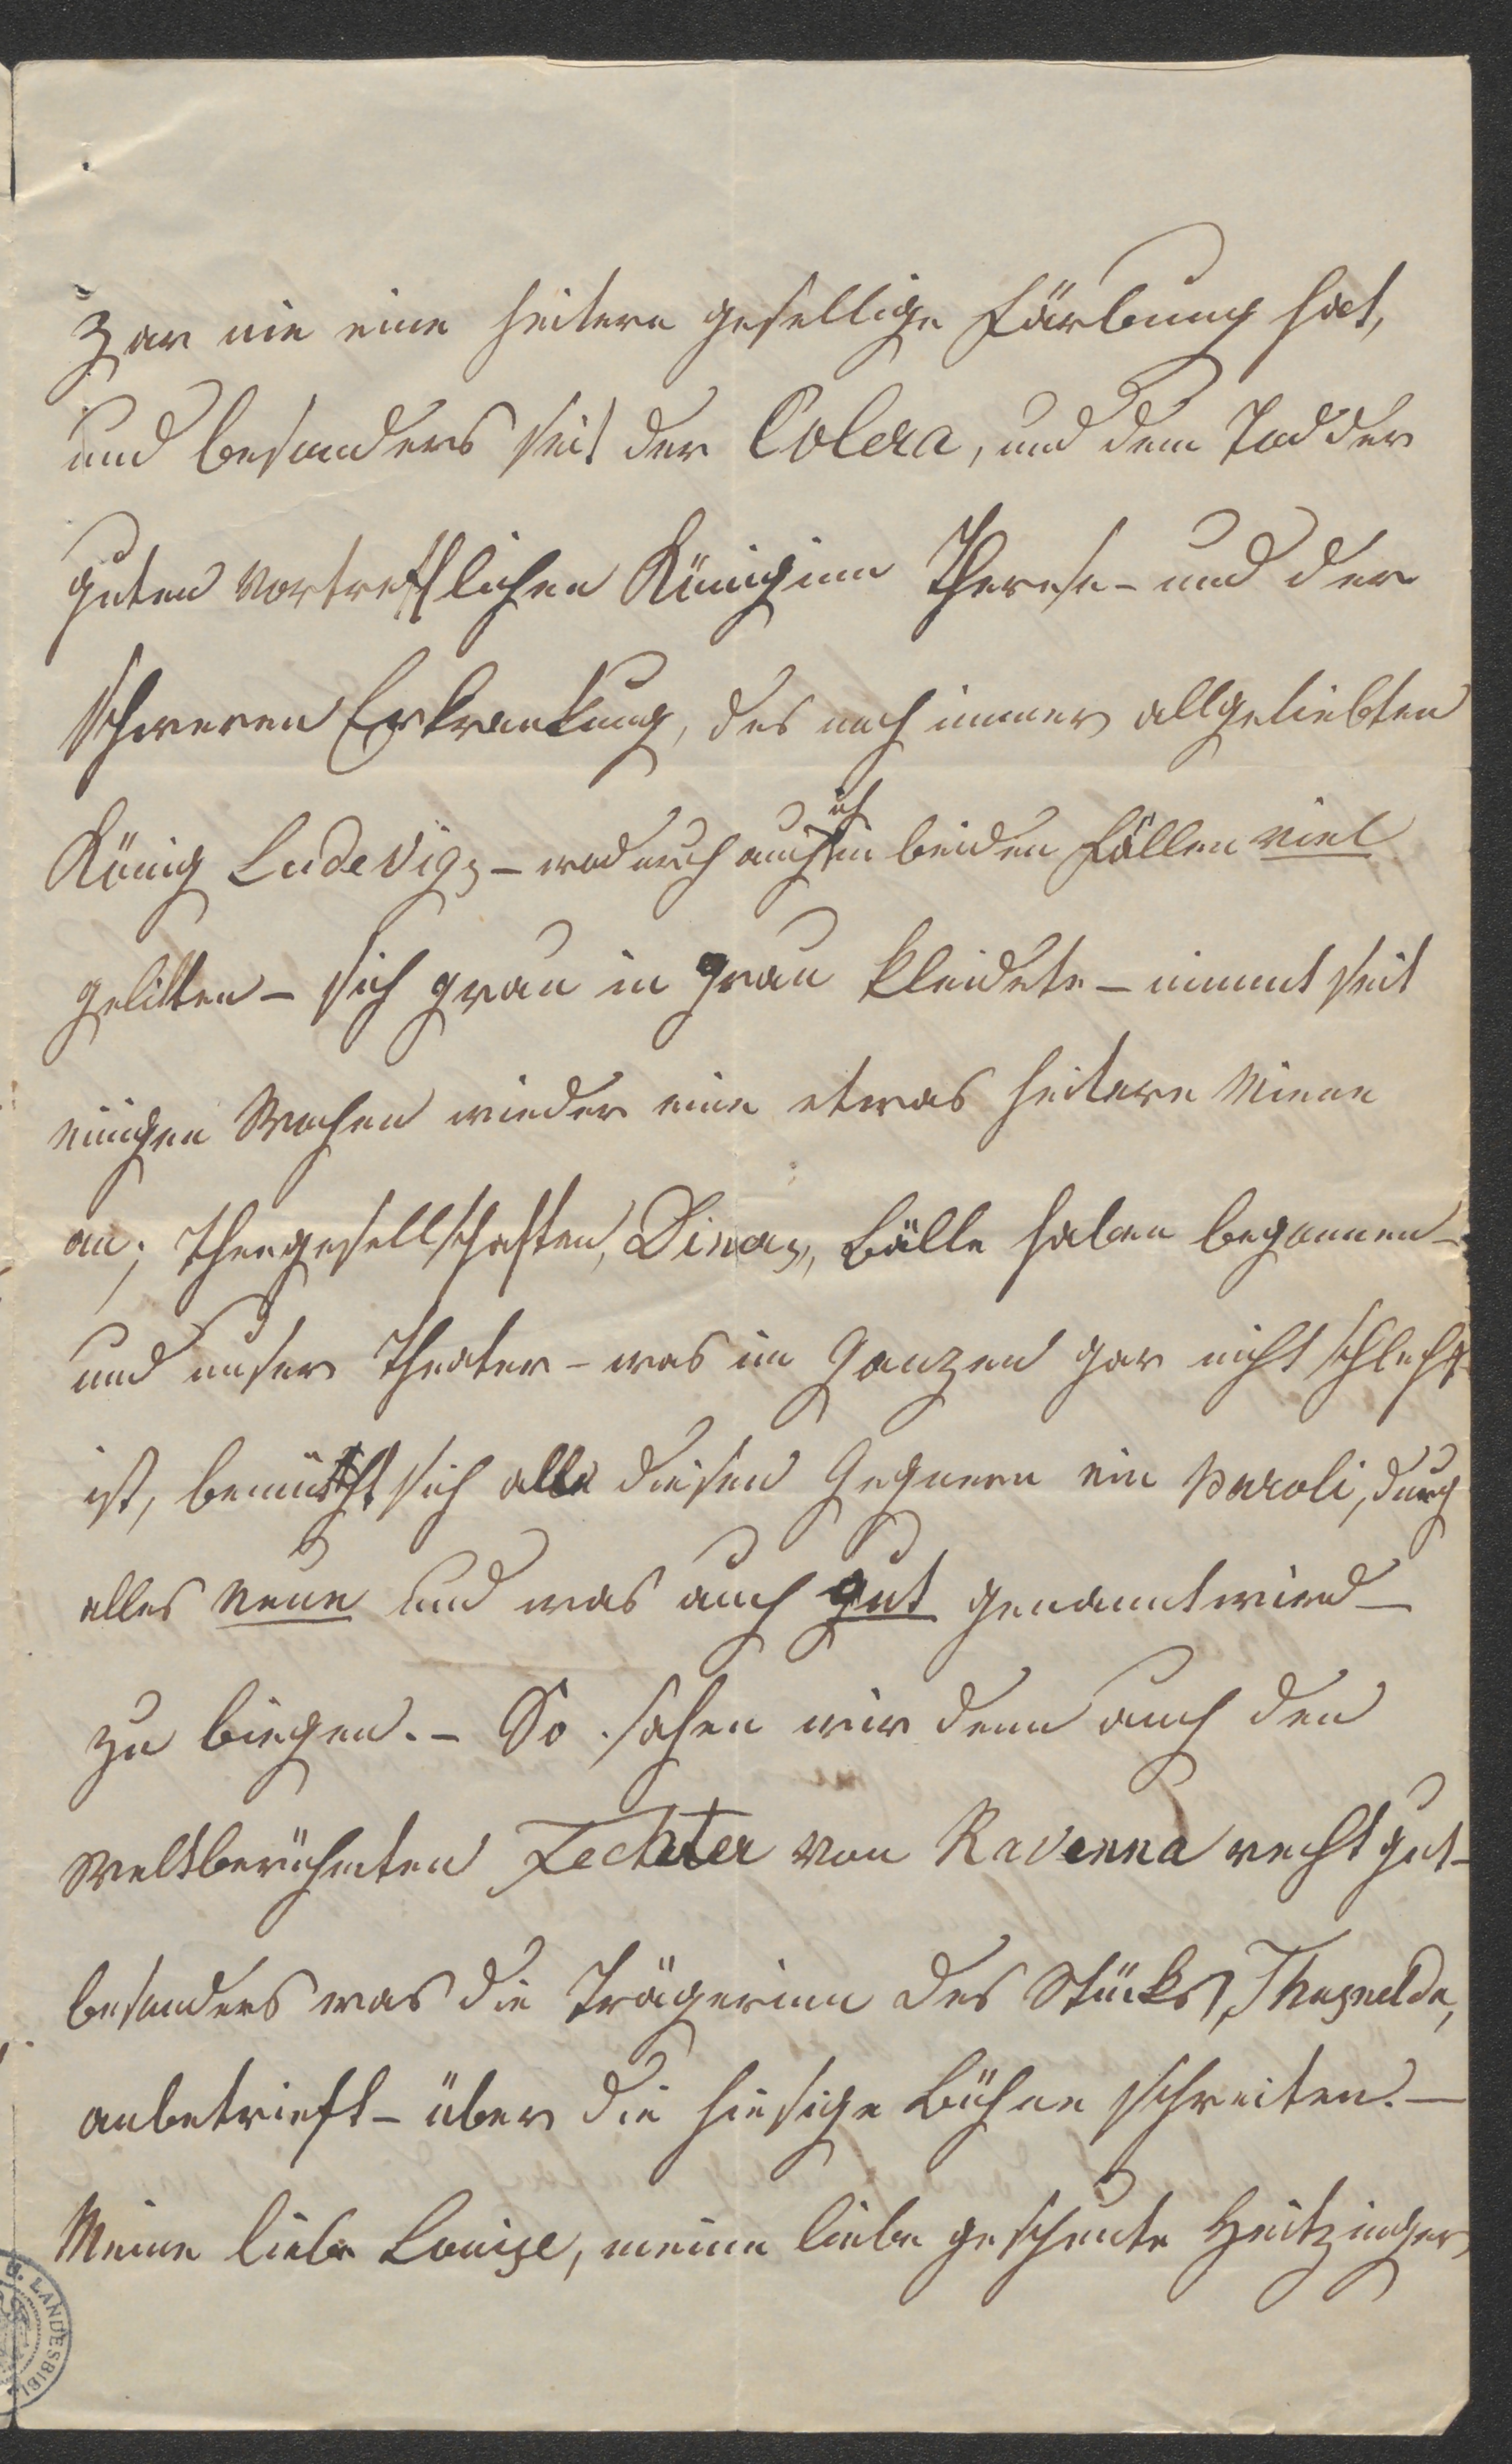 zar nie eine heitere gesellige Färbung hat,
und besonders seit der Colera, und dem Tod der
guten vortrefflichen Königinn Therese - und der
schweren Erkrankung, des noch immer allgeliebten
König Ludevigs, - wodurch auch ich in beiden Fällen viel
gelitten - sich grau in grau kleidete - nimmt seit
einigen Wochen wieder eine etwas heitere Miene
an; Theegesellschaften, Diners, Bälle haben begonnen -
und unser Theater - was im Ganzen gar nicht schlecht
ist, bemüht sich alle diesen Gegnern ein Paroli, durch
alles neue und was auch gut genannt wird -
zu biegen. - So sahen wir denn auch den
weltberühmten Fechter von Ravenna recht gut -
besonders was die Trägerinn des Stücks, Thusnelda,
anbetrieft - über die hiesige Bühne schreiten. -
Meine liebe Louise, meine liebe gescheute Heitzinger,
LANDESBIBL